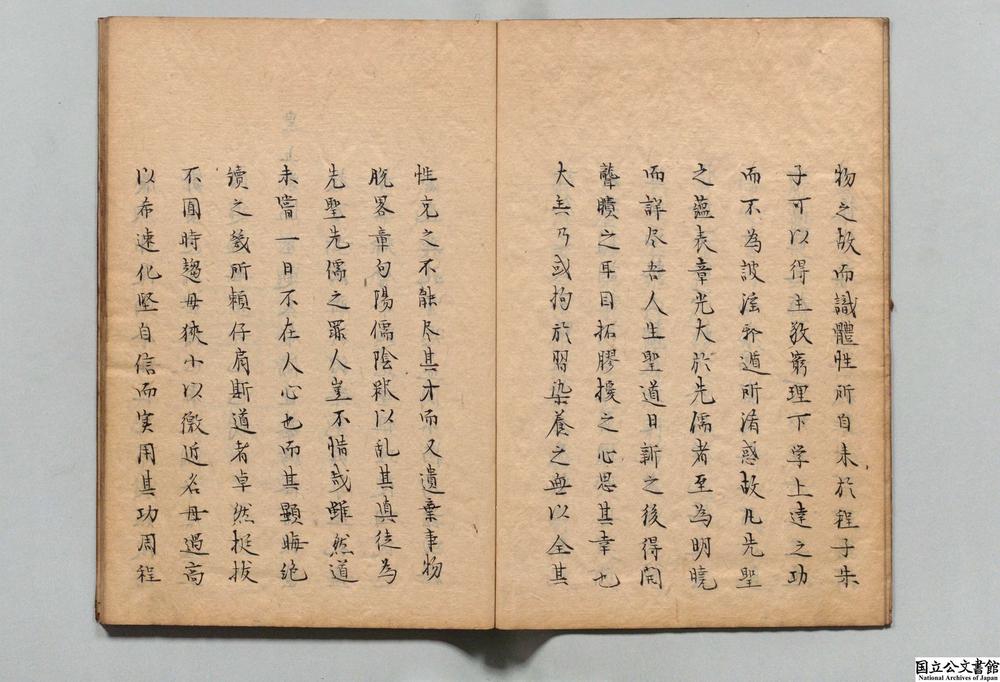 物之故而識體性所自来於程子朱
子可以得主敬窮理下学上達之功
而不為詖淫邪遁所淆惑故凡先聖
之蘊表章光大於先儒者至為明曉
而詳尽吾人生聖道日新之後得開
聾聵之耳目拓膠擾之心思其幸也
大矣乃或拘於習染養之無以全其
性充之不能尽其才而又遺棄事物
脱畧章句陽儒陰釈以乱其真徒為
先聖先儒之罪人豈不惜哉雖然道
未嘗一日不在人心也而其顕晦絶
續之幾所頼仔肩斯道者卓然挺拔
不囿時趨毋狹小以徼近名毋過高
以希速化堅自信而実用其功周程
国立公文書館
National Archives of Japan